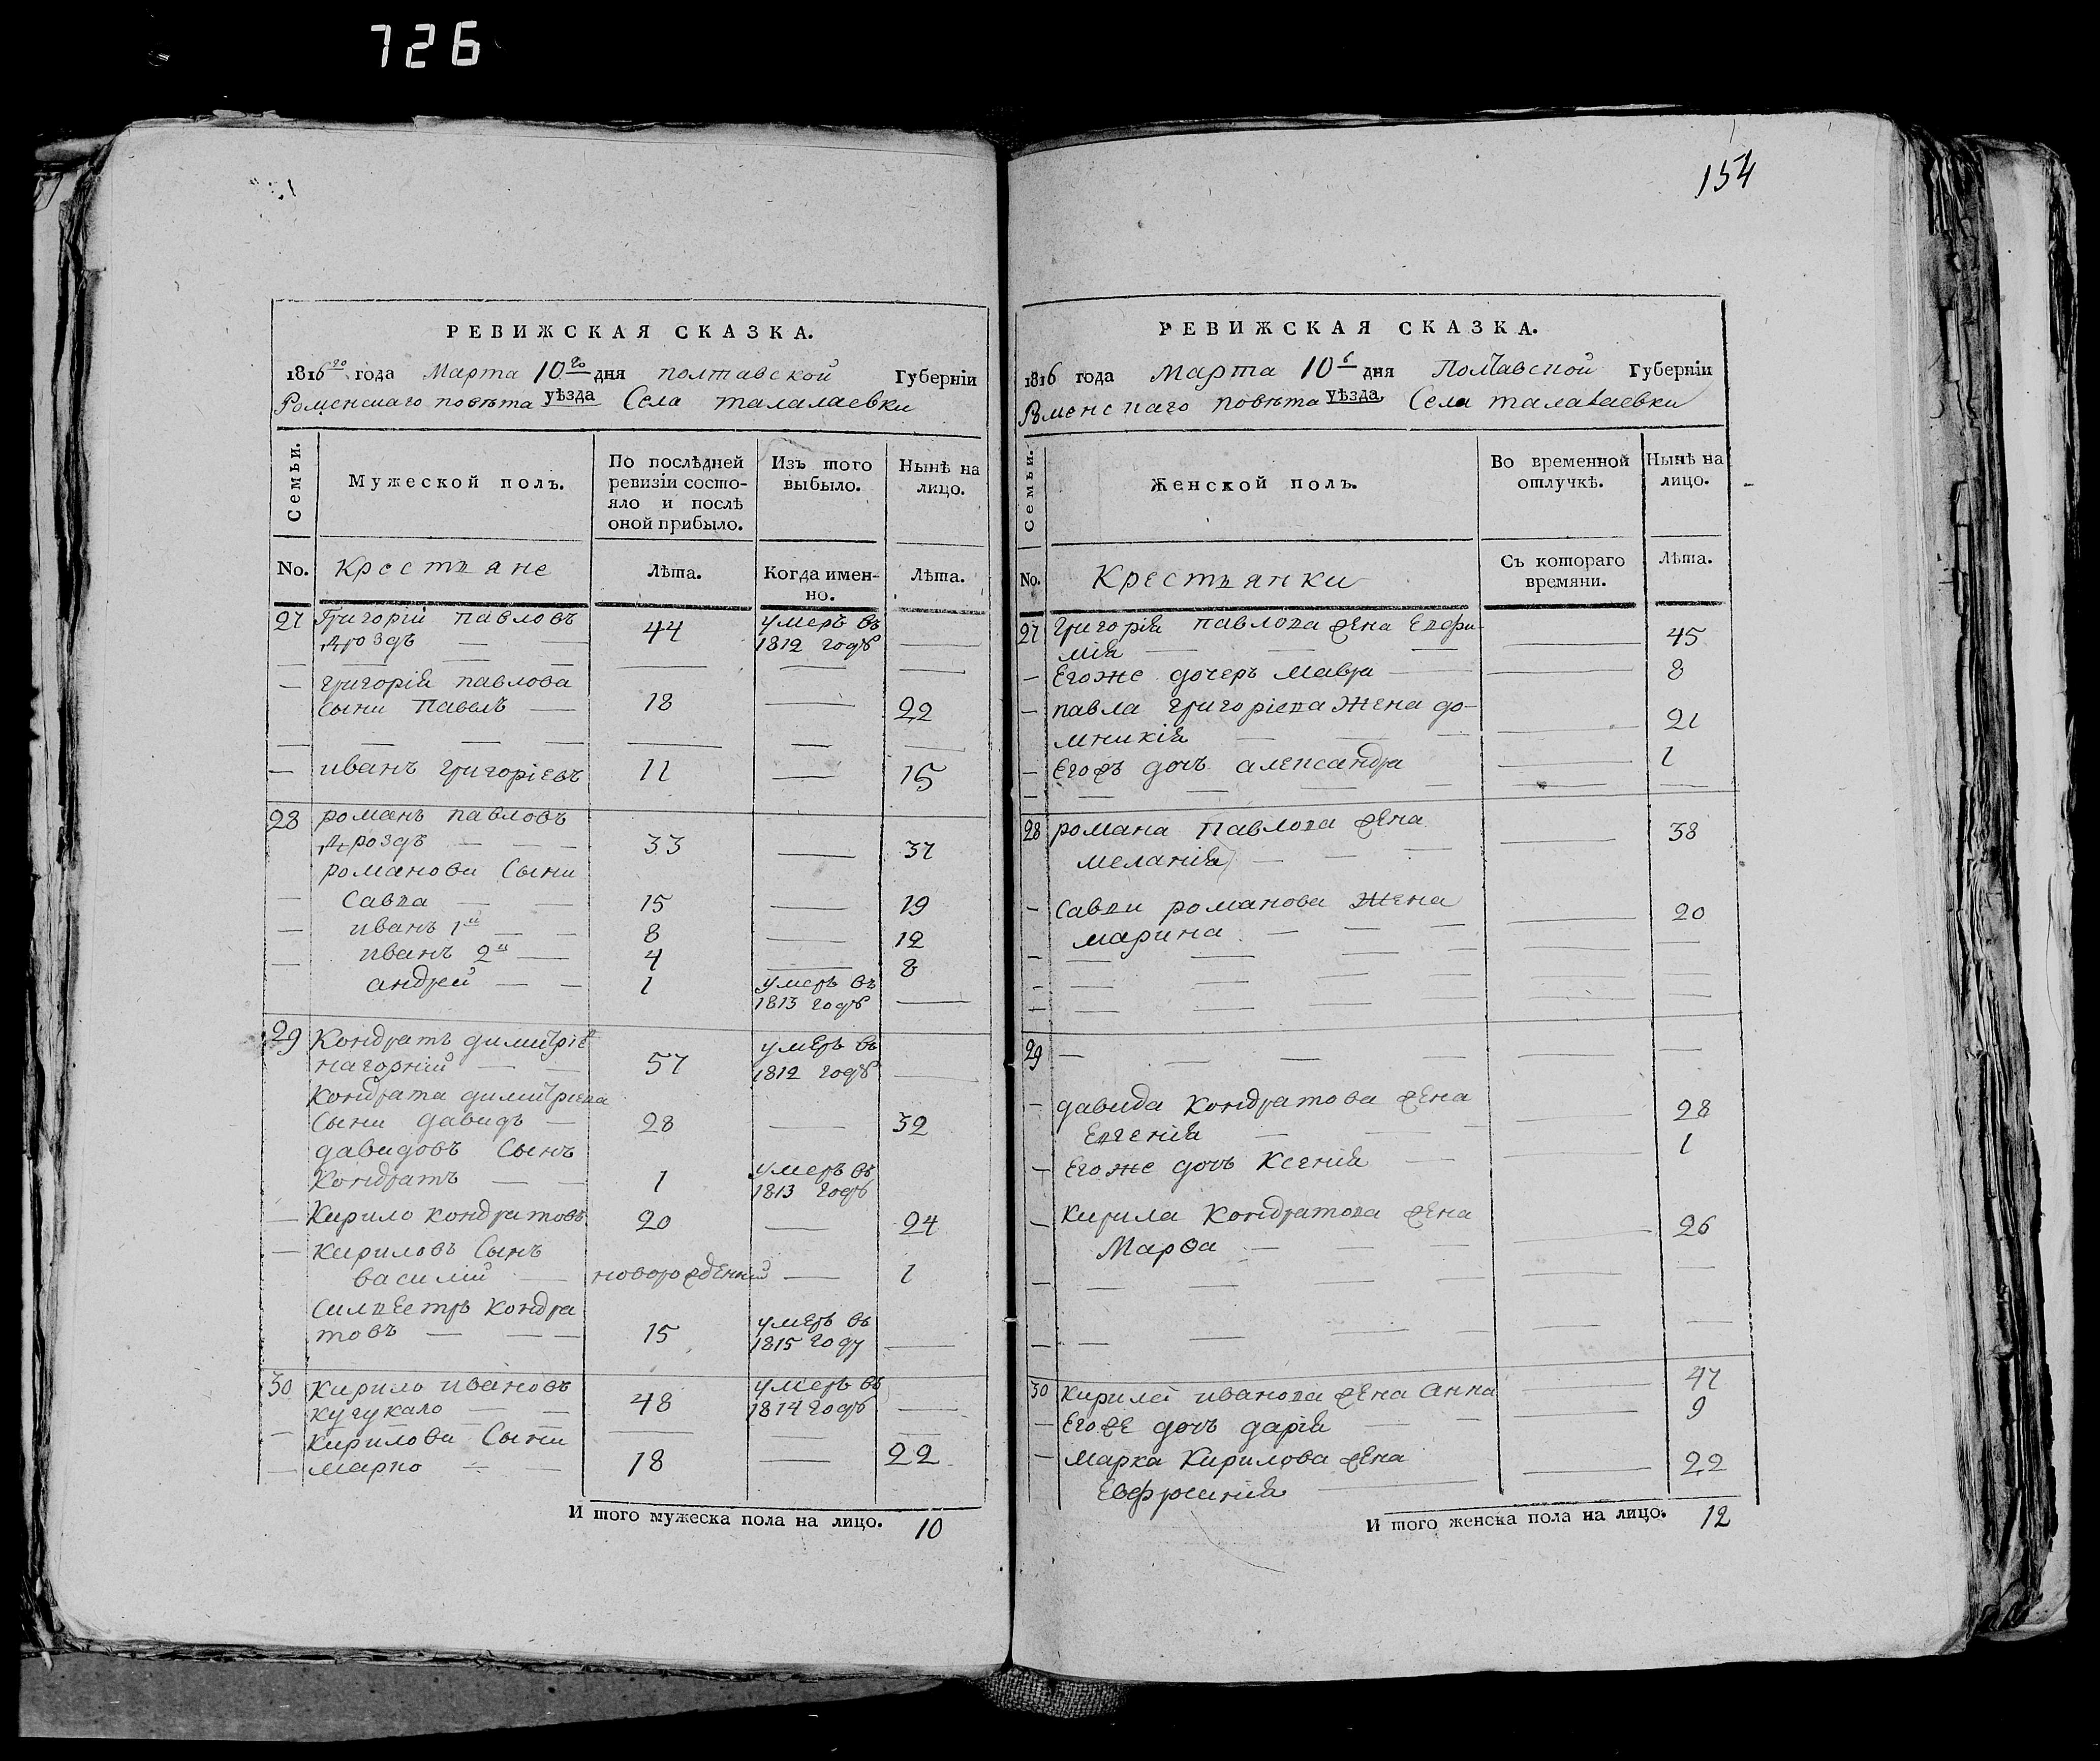 726
154
РЕВИЖСКАЯ СКАЗКА.
1816го года Марта 10го дня полтавской Губернїи
Роменскаго повѣта уѣзда Села талалаевки
Семьи.
Мужеской полъ.
По послѣдней ревизїи состояло и послѣ оной прибыло.
Изъ того выбыло.
Нынѣ на лицо.
No. Крестьяне Лѣта. Когда именно. Лѣта.
27 Григорій павловъ умеръ въ
Дроздъ — — 44 1812 годѣ —
— григорія павлова
Сыни Павелъ — 18 — 22
— иванъ григоріевъ 11 — 15
28 романъ павловъ
Дроздъ — — 33 — 37
романови Сыни
— Савва — — 15 — 19
— иванъ 1й — — 8 — 12
— иванъ 2й — 4 — 8
андрей — — 1 умеръ въ
1813 годѣ —
29 Кондратъ димитріе умеръ въ
нагорній — — 57 1812 годѣ —
Кондрата димитріева
Сыни давидъ — 28 — 32
давидовъ Сынъ
Кондратъ — — 1 умеръ въ
1813 годѣ
— Кирило кондратовъ 20 — 24
— Кириловъ Сынъ
василій — новорожденній — 1
Силвестръ Кондра
товъ — — — 15 умеръ въ
1815 году —
30 Кирило ивановъ умеръ въ
кугукало — — 48 1814 годѣ —
— Кирилови Сыни
— марко — — 18 — 22
И того мужеска пола на лицо. 10
РЕВИЖСКАЯ СКАЗКА.
1816 года Марта 10 дня Полтавской Губернїи
Роменскаго повѣта уѣзда Села талалаевки
Семьи.
Женской полъ.
Во временной отлучкѣ.
Нынѣ на лицо.
No. Крестьянки Съ котораго времяни. Лѣта.
27 григорія павлова жена Евфи-
мія — — — — 45
— Егоже дочеръ мавра — — 8
— павла григоріева жена до-
мникія — — — — 21
— Егожъ дочъ александра — 1
28 романа Павлова жена
меланія — — — — 38
— Савви романова жена
марина — — — — 20
29 — — — —
— давида Кондратова жена
Евгенія — — — — 28
— Егоже дочъ Ксенія — — 1
— Кирила Кондратова жена
Марѳа — — — — 26
30 Кирила иванова жена Анна — 47
— Егоже дочъ дарія — — 9
— марка Кирилова жена
Евфросинія — — 22
И того женска пола на лицо. 12